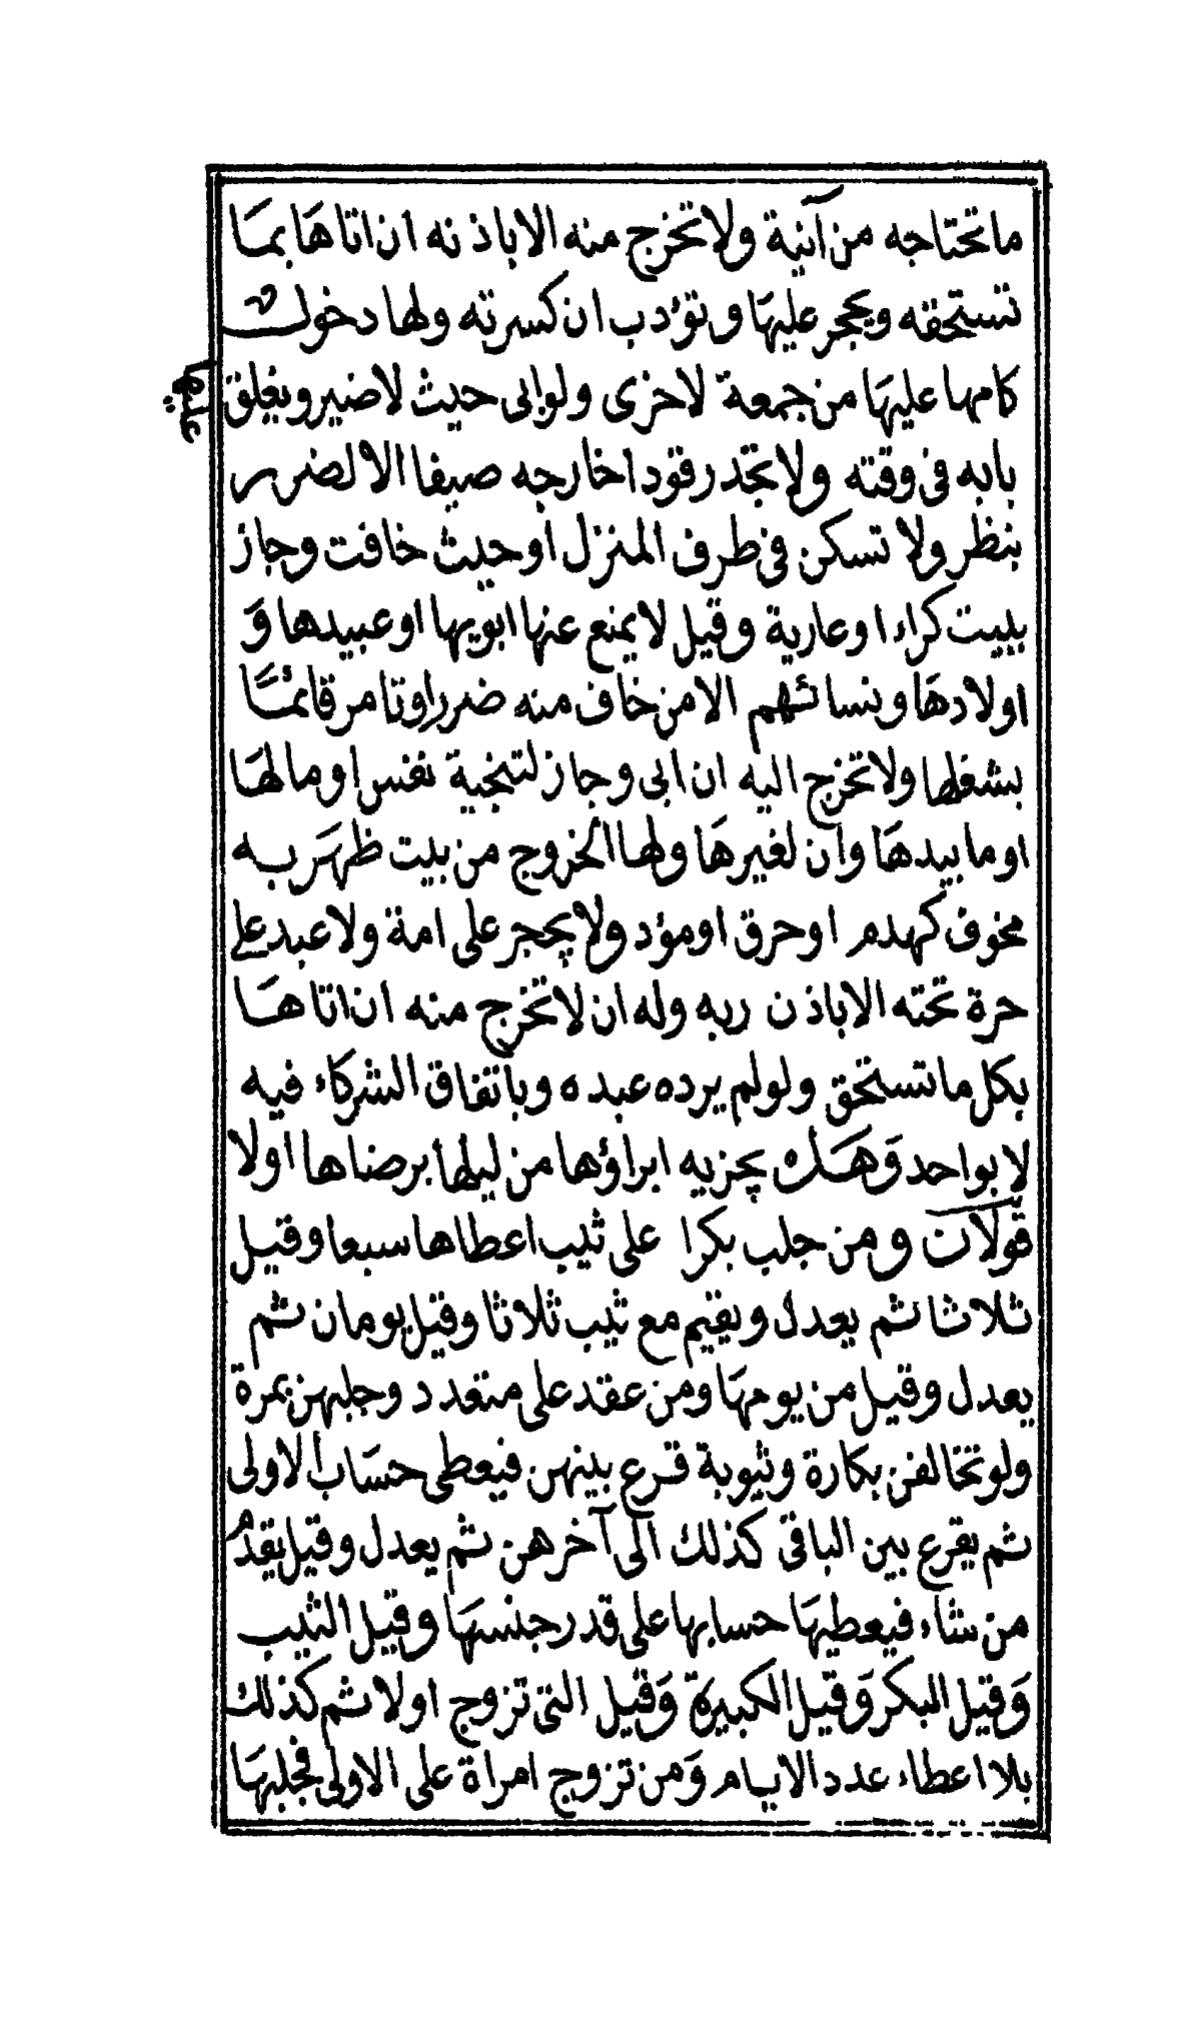 ما تحتاجه من آنية ولا تخرج منه الا باذ نه ان اتاها بما
تستحقه ويحجر عليها و تؤدب ان كسرته ولها دخول
كامها عليها من جمعة لاخرى ولو ابى حيث لا ضير ويغلق
عليها
بابه فى وقته ولا تتخذ رقودا خارجه صيفا الا لضر ر
ينظر ولا تسكن فى طرف المنزل او حيث خافت وجاز
ببيت كراء او عارية وقيل لا يمنع عنها ابويها او عبيدها و
اولادها ونسائهم الا من خاف منه ضررا وتامر قائما
بشغلها ولا تخرج اليه ان ابى وجاز لتنجية نفس او مالها
او ما بيدها وان لغيرها ولها الخروج من بيت ظهر به
مخوف كهدم او حرق او مؤذ ولا يحجر على امة ولا عبد على
حرة تحته الا باذ ن ربه وله ان لا تخرج منه ان اتاها
بكل ما تستحق ولو لم يرده عبد ه وباتفاق الشركاء فيه
لا بواحد وهل يجزيه ابراؤها من ليلها برضاها اولا
قولان ومن جلب بكرا على ثيب اعطاها سبعا وقيل
ثلاثا ثم يعدل ويقيم مع ثيب ثلاثا وقيل يومان ثم
يعدل وقيل من يومها ومن عقد على متعدد وجلبهن بمرة
ولو تخالفن بكارة وثيوبة قرع بينهن فيعطى حساب الاولى
ثم يقرع بين الباقى كذلك الى آخرهن ثم يعدل وقيل يقدم
من شاء فيعطيها حسابها على قدر جنسها وقيل الثيب
وقيل البكر وقيل الكبيرة وقيل التى تزوج اولا ثم كذلك
بلا اعطاء عدد الايام ومن تزوج امراة على الاولى فجلبها